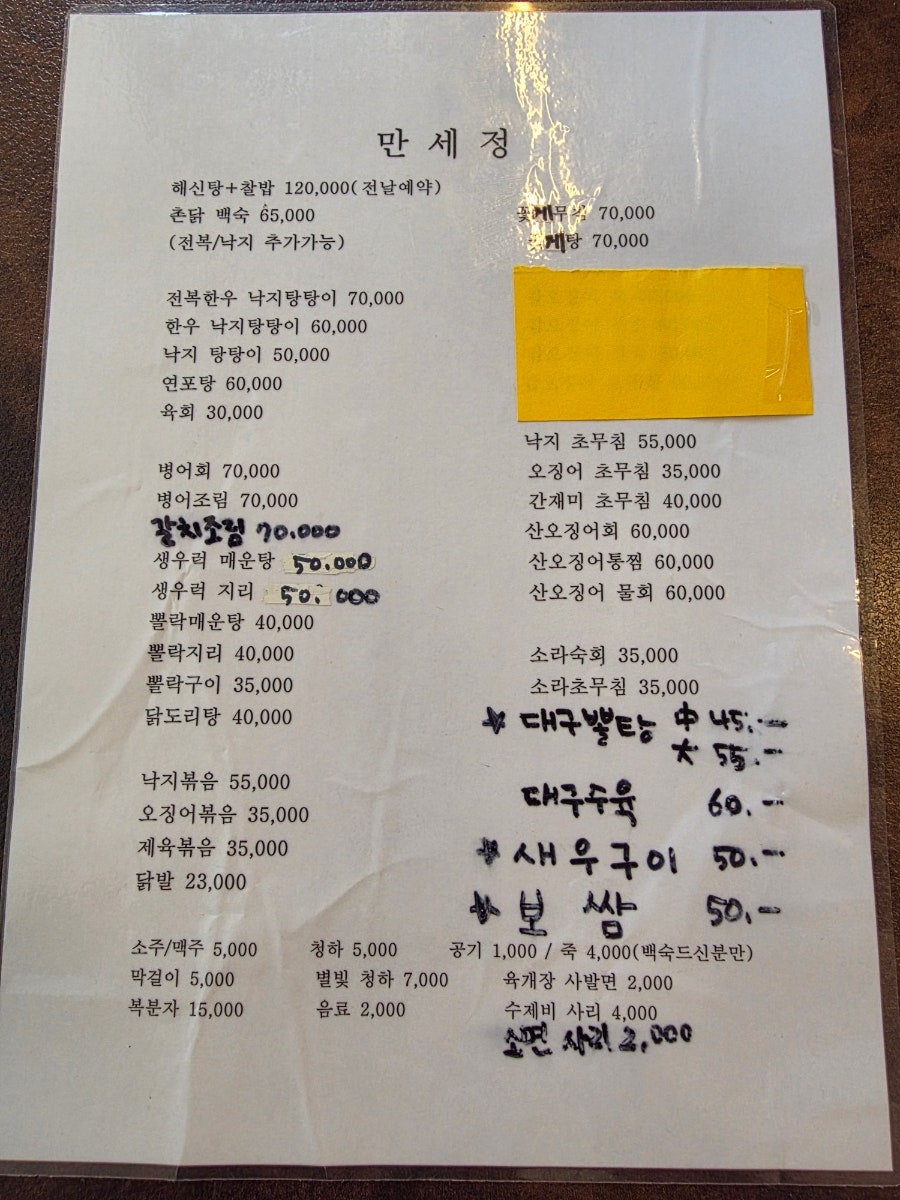 만 세 정
해신탕+찰밥 120,000(전날예약)
촌닭 백숙 65,000
(전복/낙지 추가가능)
전복한우 낙지탕탕이 70,000
한우 낙지탕탕이 60,000
낙지 탕탕이 50,000
연포탕 60,000
육회 30,000
병어회 70,000
병어조림 70,000
갈치조림 70.000
생우럭 매운탕 50.000
생우럭 지리 50.000
뽈락매운탕 40,000
뽈락지리 40,000
뽈락구이 35,000
닭도리탕 40,000
낙지볶음 55,000
오징어볶음 35,000
제육볶음 35,000
닭발 23,000
꽃게무침 70,000
꽃게탕 70,000
낙지 초무침 55,000
오징어 초무침 35,000
간재미 초무침 40,000
산오징어회 60,000
산오징어통찜 60,000
산오징어 물회 60,000
소라숙회 35,000
소라초무침 35,000
★ 대구뽈탕 中 45.-
大 55.-
대구수육 60.-
★ 새우구이 50.-
★ 보쌈 50.-
소주/맥주 5,000 청하 5,000 공기 1,000 / 죽 4,000(백숙드신분만)
막걸이 5,000 별빛 청하 7,000 육개장 사발면 2,000
복분자 15,000 음료 2,000 수제비 사리 4,000
소면 사리 2,000